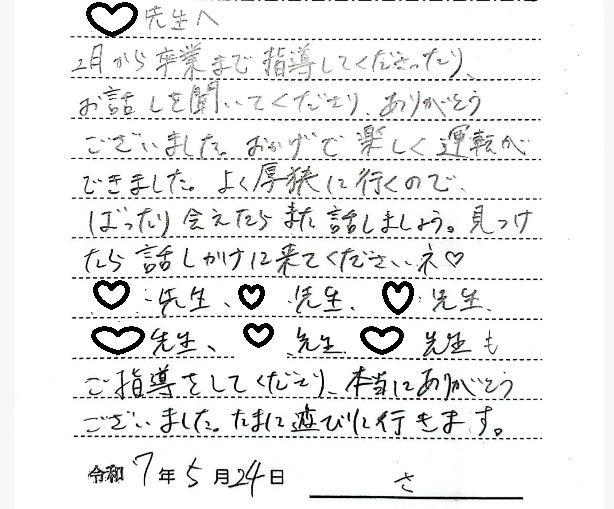 先生へ
2月から卒業まで指導してくださったり、
お話しを聞いてくださり、ありがとう
ございました。おかげで楽しく運転が
できました。よく厚狭に行くので、
ばったり会えたらまた話しましょう。見つけ
たら話しかけに来てくださいネ♡
先生、先生、先生、
先生、先生、先生も
ご指導をしてくださり、本当にありがとう
ございました。たまに遊びに行きます。
令和7年5月24日 さ